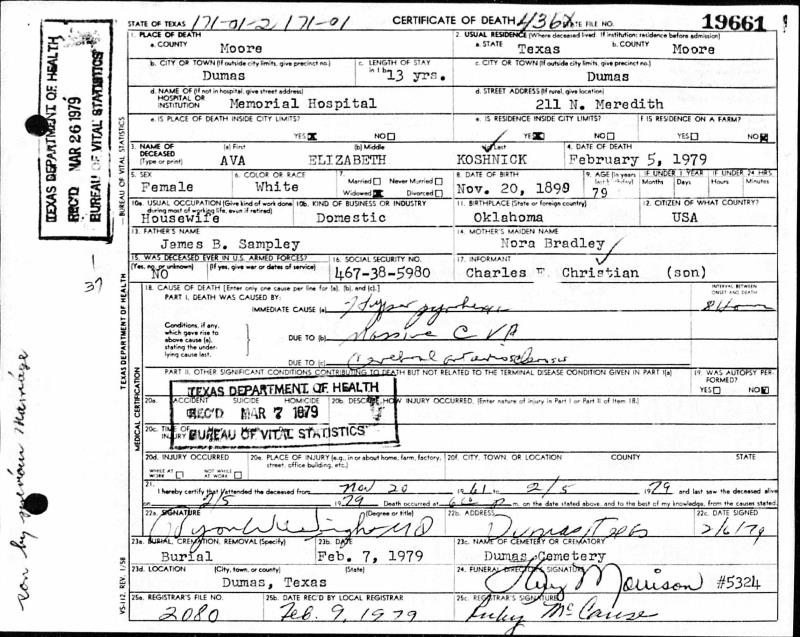 STATE OF TEXAS 171-01-2 171-01 CERTIFICATE OF DEATH 436X STATE FILE NO. 19661
1. PLACE OF DEATH
a. COUNTY Moore
2. USUAL RESIDENCE (Where deceased lived. If institution: residence before admission)
a. STATE Texas b. COUNTY Moore
b. CITY OR TOWN (If outside city limits, give precinct no.) Dumas
c. LENGTH OF STAY in 1b 13 yrs.
c. CITY OR TOWN (If outside city limits, give precinct no.) Dumas
d. NAME OF (If not in hospital, give street address) HOSPITAL OR INSTITUTION Memorial Hospital
d. STREET ADDRESS (If rural, give location) 211 N. Meredith
e. IS PLACE OF DEATH INSIDE CITY LIMITS? YES NO
e. IS RESIDENCE INSIDE CITY LIMITS? YES NO
f. IS RESIDENCE ON A FARM? YES NO
3. NAME OF DECEASED (Type or print) (a) First AVA (b) Middle ELIZABETH (c) Last KOSHNICK
4. DATE OF DEATH February 5, 1979
5. SEX Female
6. COLOR OR RACE White
7. Married Never Married Widowed Divorced
8. DATE OF BIRTH Nov. 20, 1899
9. AGE (In years last birthday) 79
IF UNDER 1 YEAR Months Days
IF UNDER 24 HRS. Hours Minutes
10a. USUAL OCCUPATION (Give kind of work done during most of working life, even if retired) Housewife
10b. KIND OF BUSINESS OR INDUSTRY Domestic
11. BIRTHPLACE (State or foreign country) Oklahoma
12. CITIZEN OF WHAT COUNTRY? USA
13. FATHER'S NAME James B. Sampley
14. MOTHER'S MAIDEN NAME Nora Bradley
15. WAS DECEASED EVER IN U.S. ARMED FORCES? (Yes, no, or unknown) No (If yes, give war or dates of service)
16. SOCIAL SECURITY NO. 467-38-5980
17. INFORMANT Charles E. Christian (son)
18. CAUSE OF DEATH [Enter only one cause per line for (a), (b), and (c).]
INTERVAL BETWEEN ONSET AND DEATH
PART I. DEATH WAS CAUSED BY:
IMMEDIATE CAUSE (a) Hyperpyrexia 8 Hours
Conditions, if any, which gave rise to above cause (a), stating the underlying cause last.
DUE TO (b) Massive CVA
DUE TO (c) Cerebral arteriosclerosis
PART II. OTHER SIGNIFICANT CONDITIONS CONTRIBUTING TO DEATH BUT NOT RELATED TO THE TERMINAL DISEASE CONDITION GIVEN IN PART I(a)
19. WAS AUTOPSY PERFORMED? YES NO
20a. ACCIDENT SUICIDE HOMICIDE
20b. DESCRIBE HOW INJURY OCCURRED. (Enter nature of injury in Part I or Part II of Item 18.)
TEXAS DEPARTMENT OF HEALTH
REC'D MAR 7 1979
BUREAU OF VITAL STATISTICS
20c. TIME OF INJURY
20d. INJURY OCCURRED WHILE AT WORK NOT WHILE AT WORK
20e. PLACE OF INJURY (e.g., in or about home, farm, factory, street, office building, etc.)
20f. CITY, TOWN, OR LOCATION COUNTY STATE
21. I hereby certify that I attended the deceased from Nov 20 1961 to 2/5 1979 and last saw the deceased alive
on 2/5 1979 Death occurred at m. on the date stated above, and to the best of my knowledge, from the causes stated.
22a. SIGNATURE (Degree or title) MD
22b. ADDRESS Dumas Texas
22c. DATE SIGNED 2/6/79
23a. BURIAL, CREMATION, REMOVAL (Specify) Burial
23b. DATE Feb. 7, 1979
23c. NAME OF CEMETERY OR CREMATORY Dumas Cemetery
23d. LOCATION (City, town, or county) (State) Dumas, Texas
24. FUNERAL DIRECTOR'S SIGNATURE Morrison #5324
25a. REGISTRAR'S FILE NO. 2080
25b. DATE REC'D BY LOCAL REGISTRAR Feb. 9, 1979
25c. REGISTRAR'S SIGNATURE Ruby McCause
TEXAS DEPARTMENT OF HEALTH
REC'D MAR 26 1979
BUREAU OF VITAL STATISTICS
37
son by previous marriage
VS-112, REV. 1/58
TEXAS DEPARTMENT OF HEALTH
BUREAU OF VITAL STATISTICS
MEDICAL CERTIFICATION